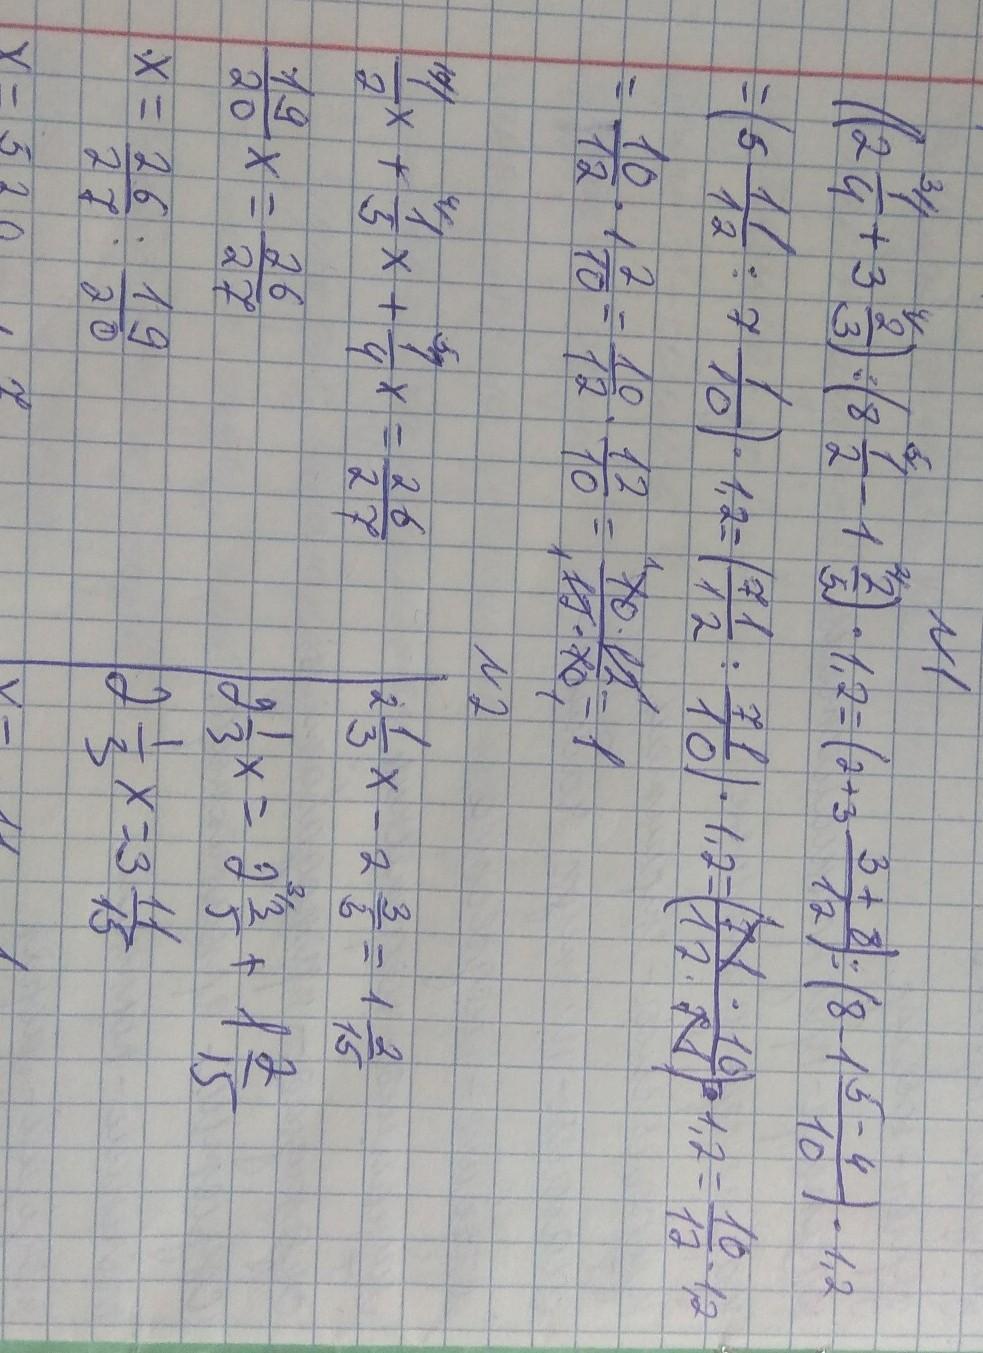 N1
((2 1/4 + 3 2/3) : (8 1/2 - 1 2/5) · 1,2 = (2+3 3+8/12) : (8-1 5-4/10) · 1,2
= (5 11/12 : 7 1/10) · 1,2 = (71/12 : 71/10) · 1,2 = (71 · 10/12 · 71) · 1,2 = 10/12 · 1,2
= 10/12 · 1 2/10 = 10/12 · 12/10 = 10 · 12/ · 10 = 1
N2
1/2 x + 1/5 x + 1/4 x = 26/27
19/20 x = 26/27
x = 26/27 : 19/20
x = 520
2 1/3 x - 2 3/ = 1 2/15
2 1/3 x = 2 /5 + 1 2/15
2 1/3 x = 3 11/15